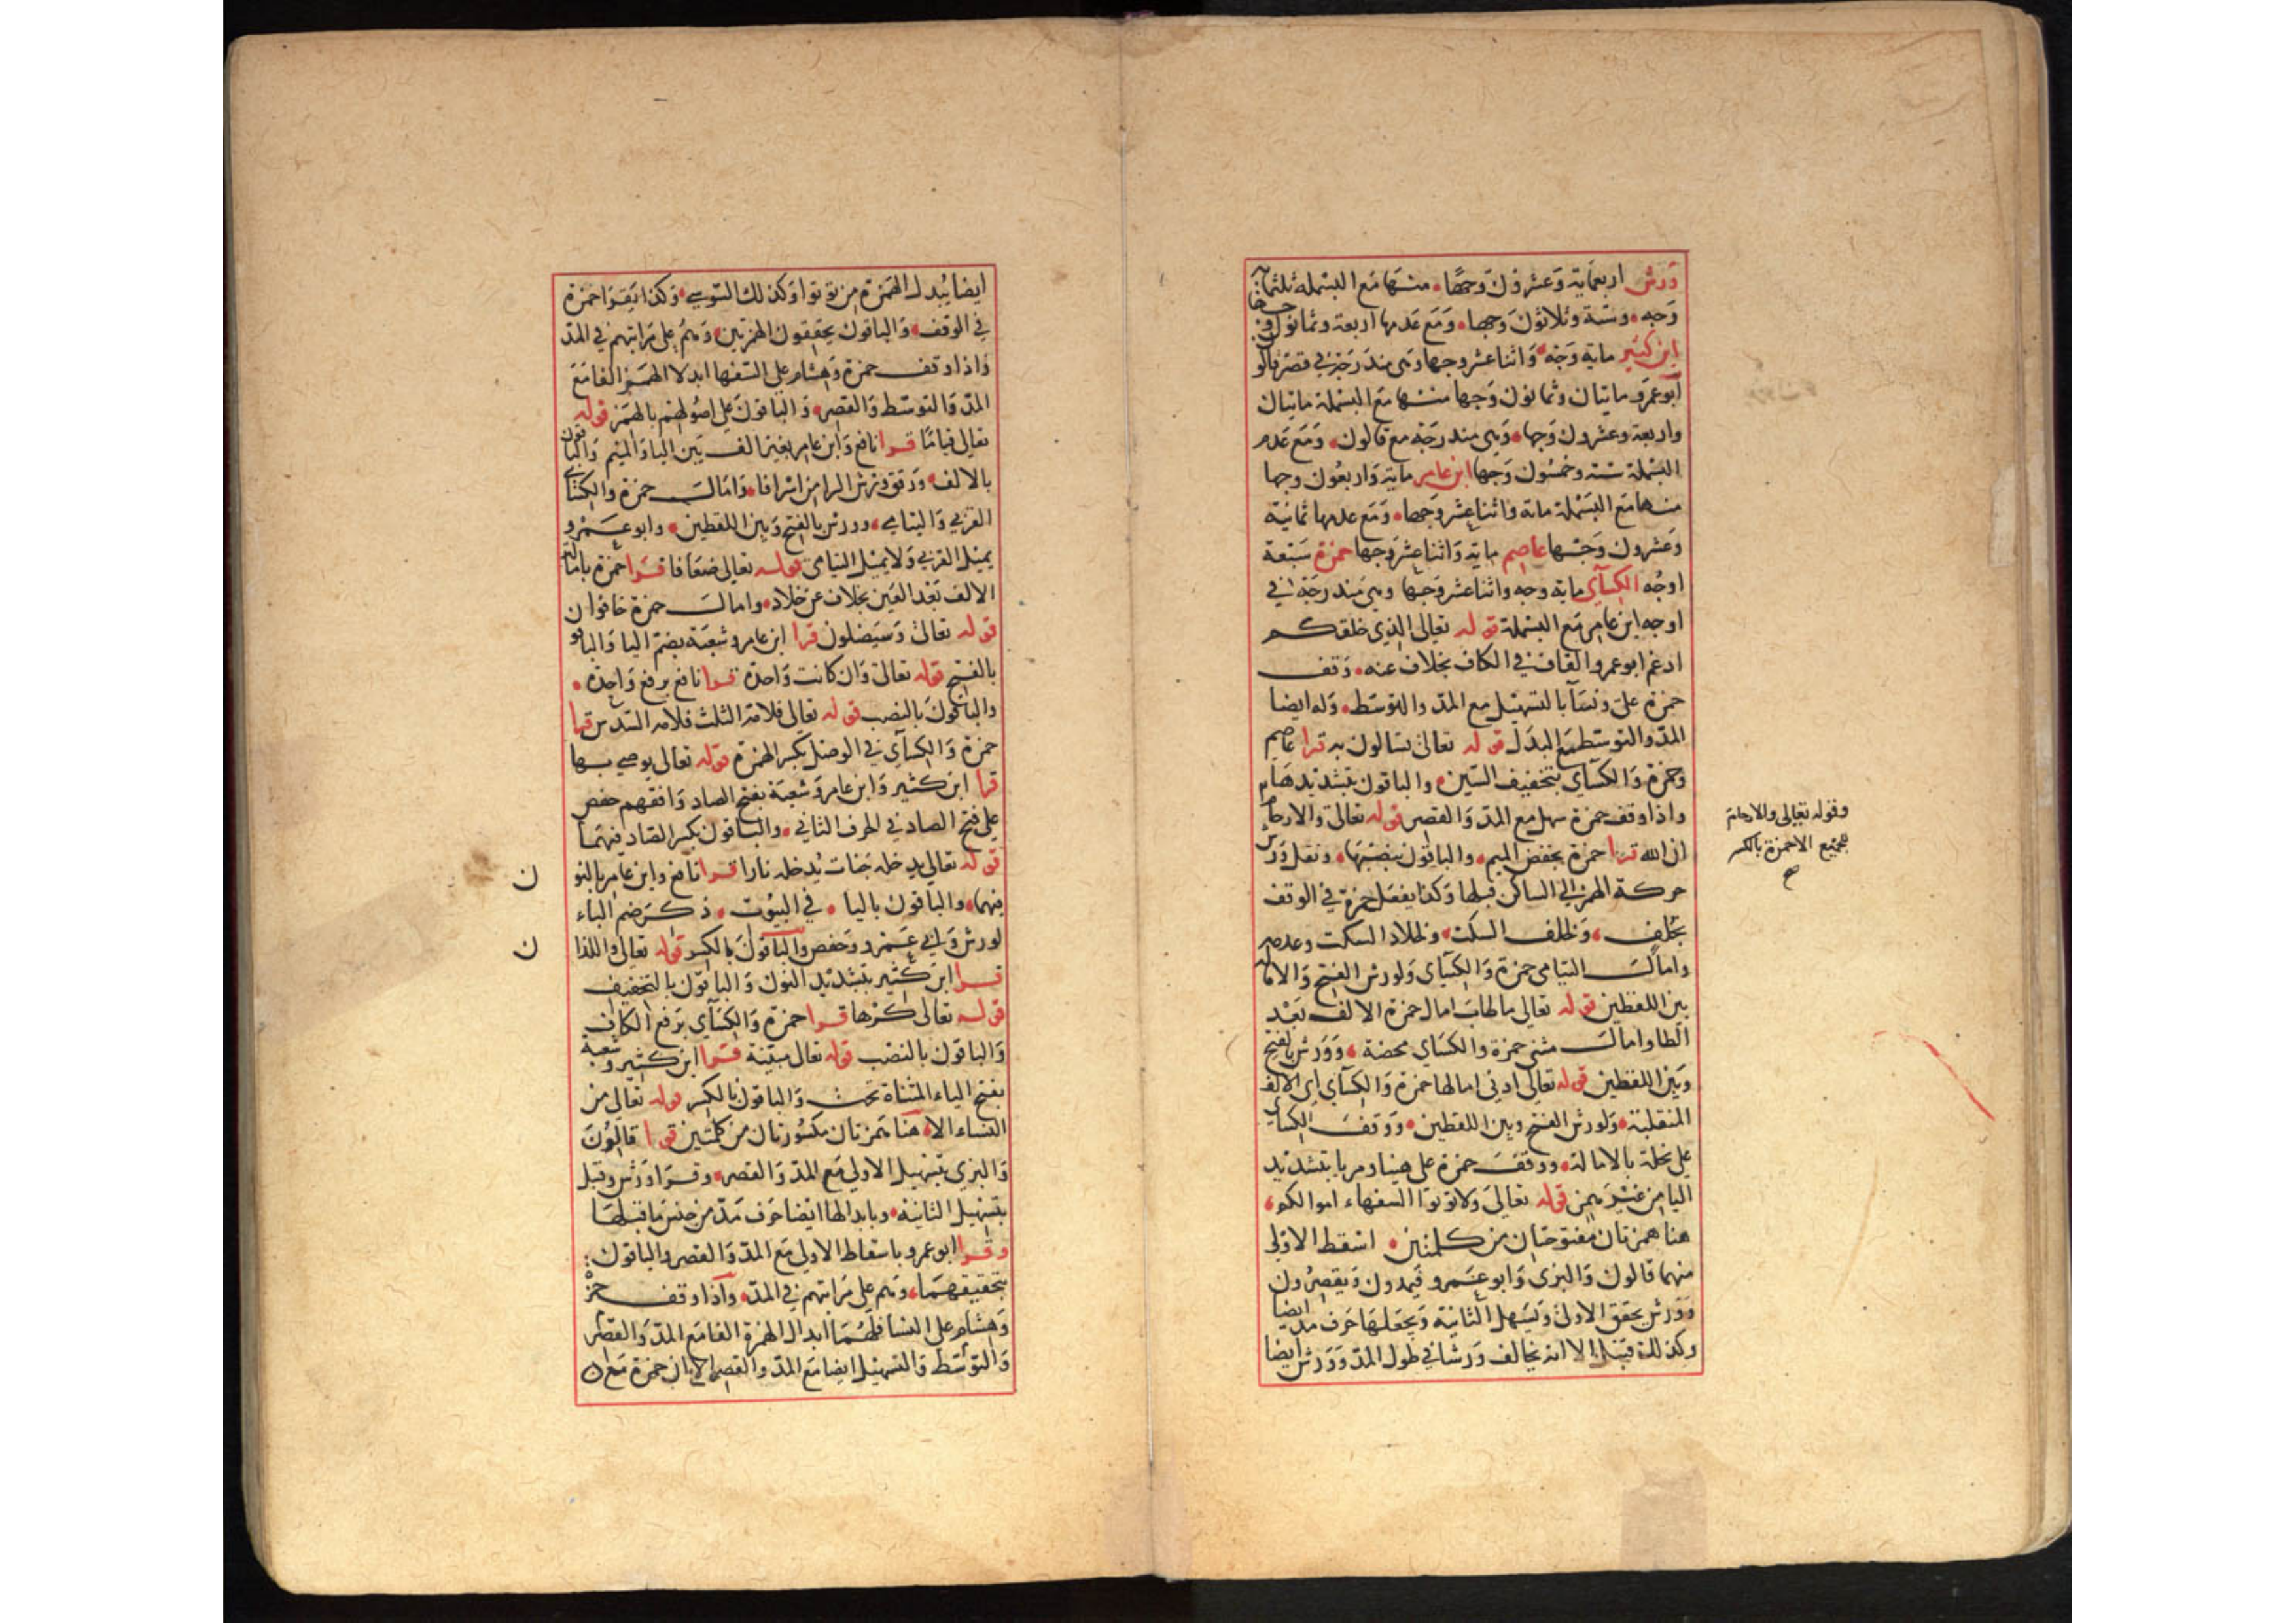 ورش اربعماية وعشرون وجها، منها مع البسملة ثلثماية
وجه، وستة وثلاثون وجها، ومع عدمها اربعة وثمانون
ابن كثير ماية وجه، واثنا عشر وجها وهي مندرجة في قصر قالون
ابو عمرو مايتان وثمانون وجها منها مع البسملة مايتان
واربعة وعشرون وجها، وهي مندرجة مع قالون، ومع عدم
البسملة ستة وخمسون وجها ابن عامر ماية واربعون وجها
منها مع البسملة ماية واثنا عشر وجها، ومع عدمها ثمانية
وعشرون وجها عاصم ماية واثنا عشر وجها حمزة سبعة
اوجه الكسآي ماية وجه واثنا عشر وجها وهي مندرجة في
اوجه ابن عامر مع البسملة قوله تعالى الذي خلقكم
ادغم ابو عمرو القاف في الكاف بخلاف عنه، وقف
حمزة على ونسآ بالتسهيل مع المد والتوسط، وله ايضا
المد والتوسط مع البدل قوله تعالى تسالون به قرا عاصم
وحمزة والكسآي بتخفيف السين، والباقون بتشديدها
واذا وقف حمزة سهل مع المد والقصر قوله تعالى والارحام
ان الله قرا حمزة بخفض الميم، والباقون بنصبها، ونقل ورش
حركة الهمزة الى الساكن قبلها وكذا يفعل حمزة في الوقف
بخلف، ولخلف السكت، ولخلاد السكت وعدمه
وامال اليتامى حمزة والكسآي ولورش الفتح والامالة
بين اللفظين قوله تعالى ما طاب امال حمزة الالف بعد
الطا وامال مثنى حمزة والكسآي محضة، وورش بالفتح
وبين اللفظين قوله تعالى ادنى امالها حمزة والكسآي اي الالف
المنقلبة، ولورش الفتح وبين اللفظين، ووقف الكسآي
على نحلة بالامالة، ووقف حمزة على هنيا ومريا بتشديد
اليا من غير همز قوله تعالى ولا توتوا السفهاء اموالكم،
هنا همزتان مفتوحتان من كلمتين، اسقط الاولى
منهما قالون والبزي وابو عمرو فيمدون ويقصرون
وورش يحقق الاولى ويسهل الثانية ويجعلها حرف مد ايضا
وكذلك قنبل الا انه يخالف ورشا في طول المد وورش ايضا
وقوله تعالى والارحام
للجميع الا حمزة بالكسر
صح
ايضا يبدل الهمزة من توتوا وكذلك السوسي، وكذا يقرا حمزة
في الوقف، والباقون يحققون الهمزتين، وهم على مراتبهم في المد
واذا وقف حمزة وهشام على السفها ابدلا الهمزة الفا مع
المد والتوسط والقصر، والباقون على اصولهم بالهمز قوله
تعالى قياما قرا نافع وابن عامر بغير الف بين اليا والميم والباقون
بالالف، ورقق ورش الرا من اسرافا، وامال حمزة والكسآي
القربى واليتامى، وورش بالفتح وبين اللفظين، وابو عمرو
يميل القربى ولا يميل اليتامى قوله تعالى ضعافا قرا حمزة بامالة
الالف بعد العين بخلاف عن خلاد، وامال حمزة خافوا ن
قوله تعالى وسيصلون قرا ابن عامر وشعبة بضم اليا والباقو
بالفتح قوله تعالى وان كانت واحدة قرا نافع برفع واحدة،
والباقون بالنصب قوله تعالى فلامه الثلث فلامه السدس قرا
حمزة والكسآي في الوصل بكسر الهمزة قوله تعالى يوصي بها
قرا ابن كثير وابن عامر وشعبة بفتح الصاد وافقهم حفص
على فتح الصاد في الحرف الثاني، والباقون بكسر الصاد فيهما
قوله تعالى يدخله جنات يدخله نارا قرا نافع وابن عامر بالنو ن
فيهما، والباقون باليا، في البيوت، ذكر ضم الباء
لورش وابي عمرو وحفص والباقون بالكسر قوله تعالى واللذا ن
قرا ابن كثير بتشديد النون والباقون بالتخفيف
قوله تعالى كرها قرا حمزة والكسآي برفع الكاف
والباقون بالنصب قوله تعالى مبينة قرا ابن كثير وشعبة
بفتح الياء المثناة تحت والباقون بالكسر قوله تعالى من
النساء الا، هنا همزتان مكسورتان من كلمتين قرا قالون
والبزي بتسهيل الاولى مع المد والقصر، وقرا ورش وقنبل
بتسهيل الثانية، وبابدالها ايضا حرف مد من جنس ما قبلها
وقرا ابو عمرو باسقاط الاولى مع المد والقصر والباقون:
بتحقيقهما، وهم على مراتبهم في المد، واذا وقف حمزة
وهشام على النسا فلهما ابدال الهمزة الفا مع المد والقصر
والتوسط والتسهيل ايضا مع المد والقصر الا ان حمزة مع ن